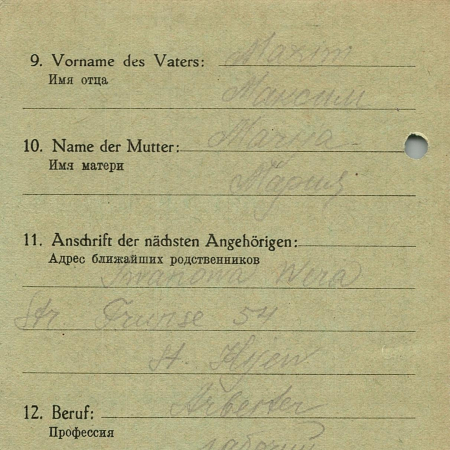 9. Vorname des Vaters: Maxim
Имя отца
Максим
10. Name der Mutter: Maria
Имя матери
Мария
11. Anschrift der nächsten Angehörigen:
Адрес ближайших родственников
Iwanowa Wera
Str Frunse 54
st. Kijew
12. Beruf: Arbeiter
Профессия
рабочий